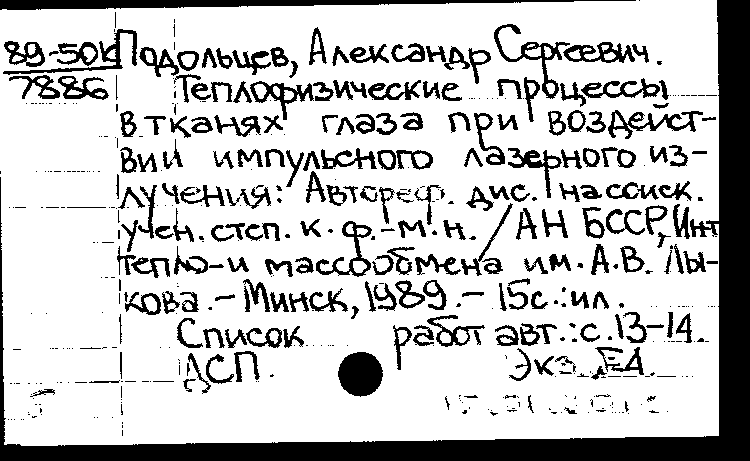 89-50К Подольцев, Александр Сергеевич.
7886 Теплофизические процессы
в тканях глаза при воздейст-
вии импульсного лазерного из-
лучения: Автореф. дис. на соиск.
учен. степ. к.ф.-м.н. / АН БССР, Ин-т
тепло- и массообмена им. А.В. Лы-
кова. - Минск, 1989. - 15с.: ил.
Список работ авт.: с. 13-14.
ДСП. Экз.